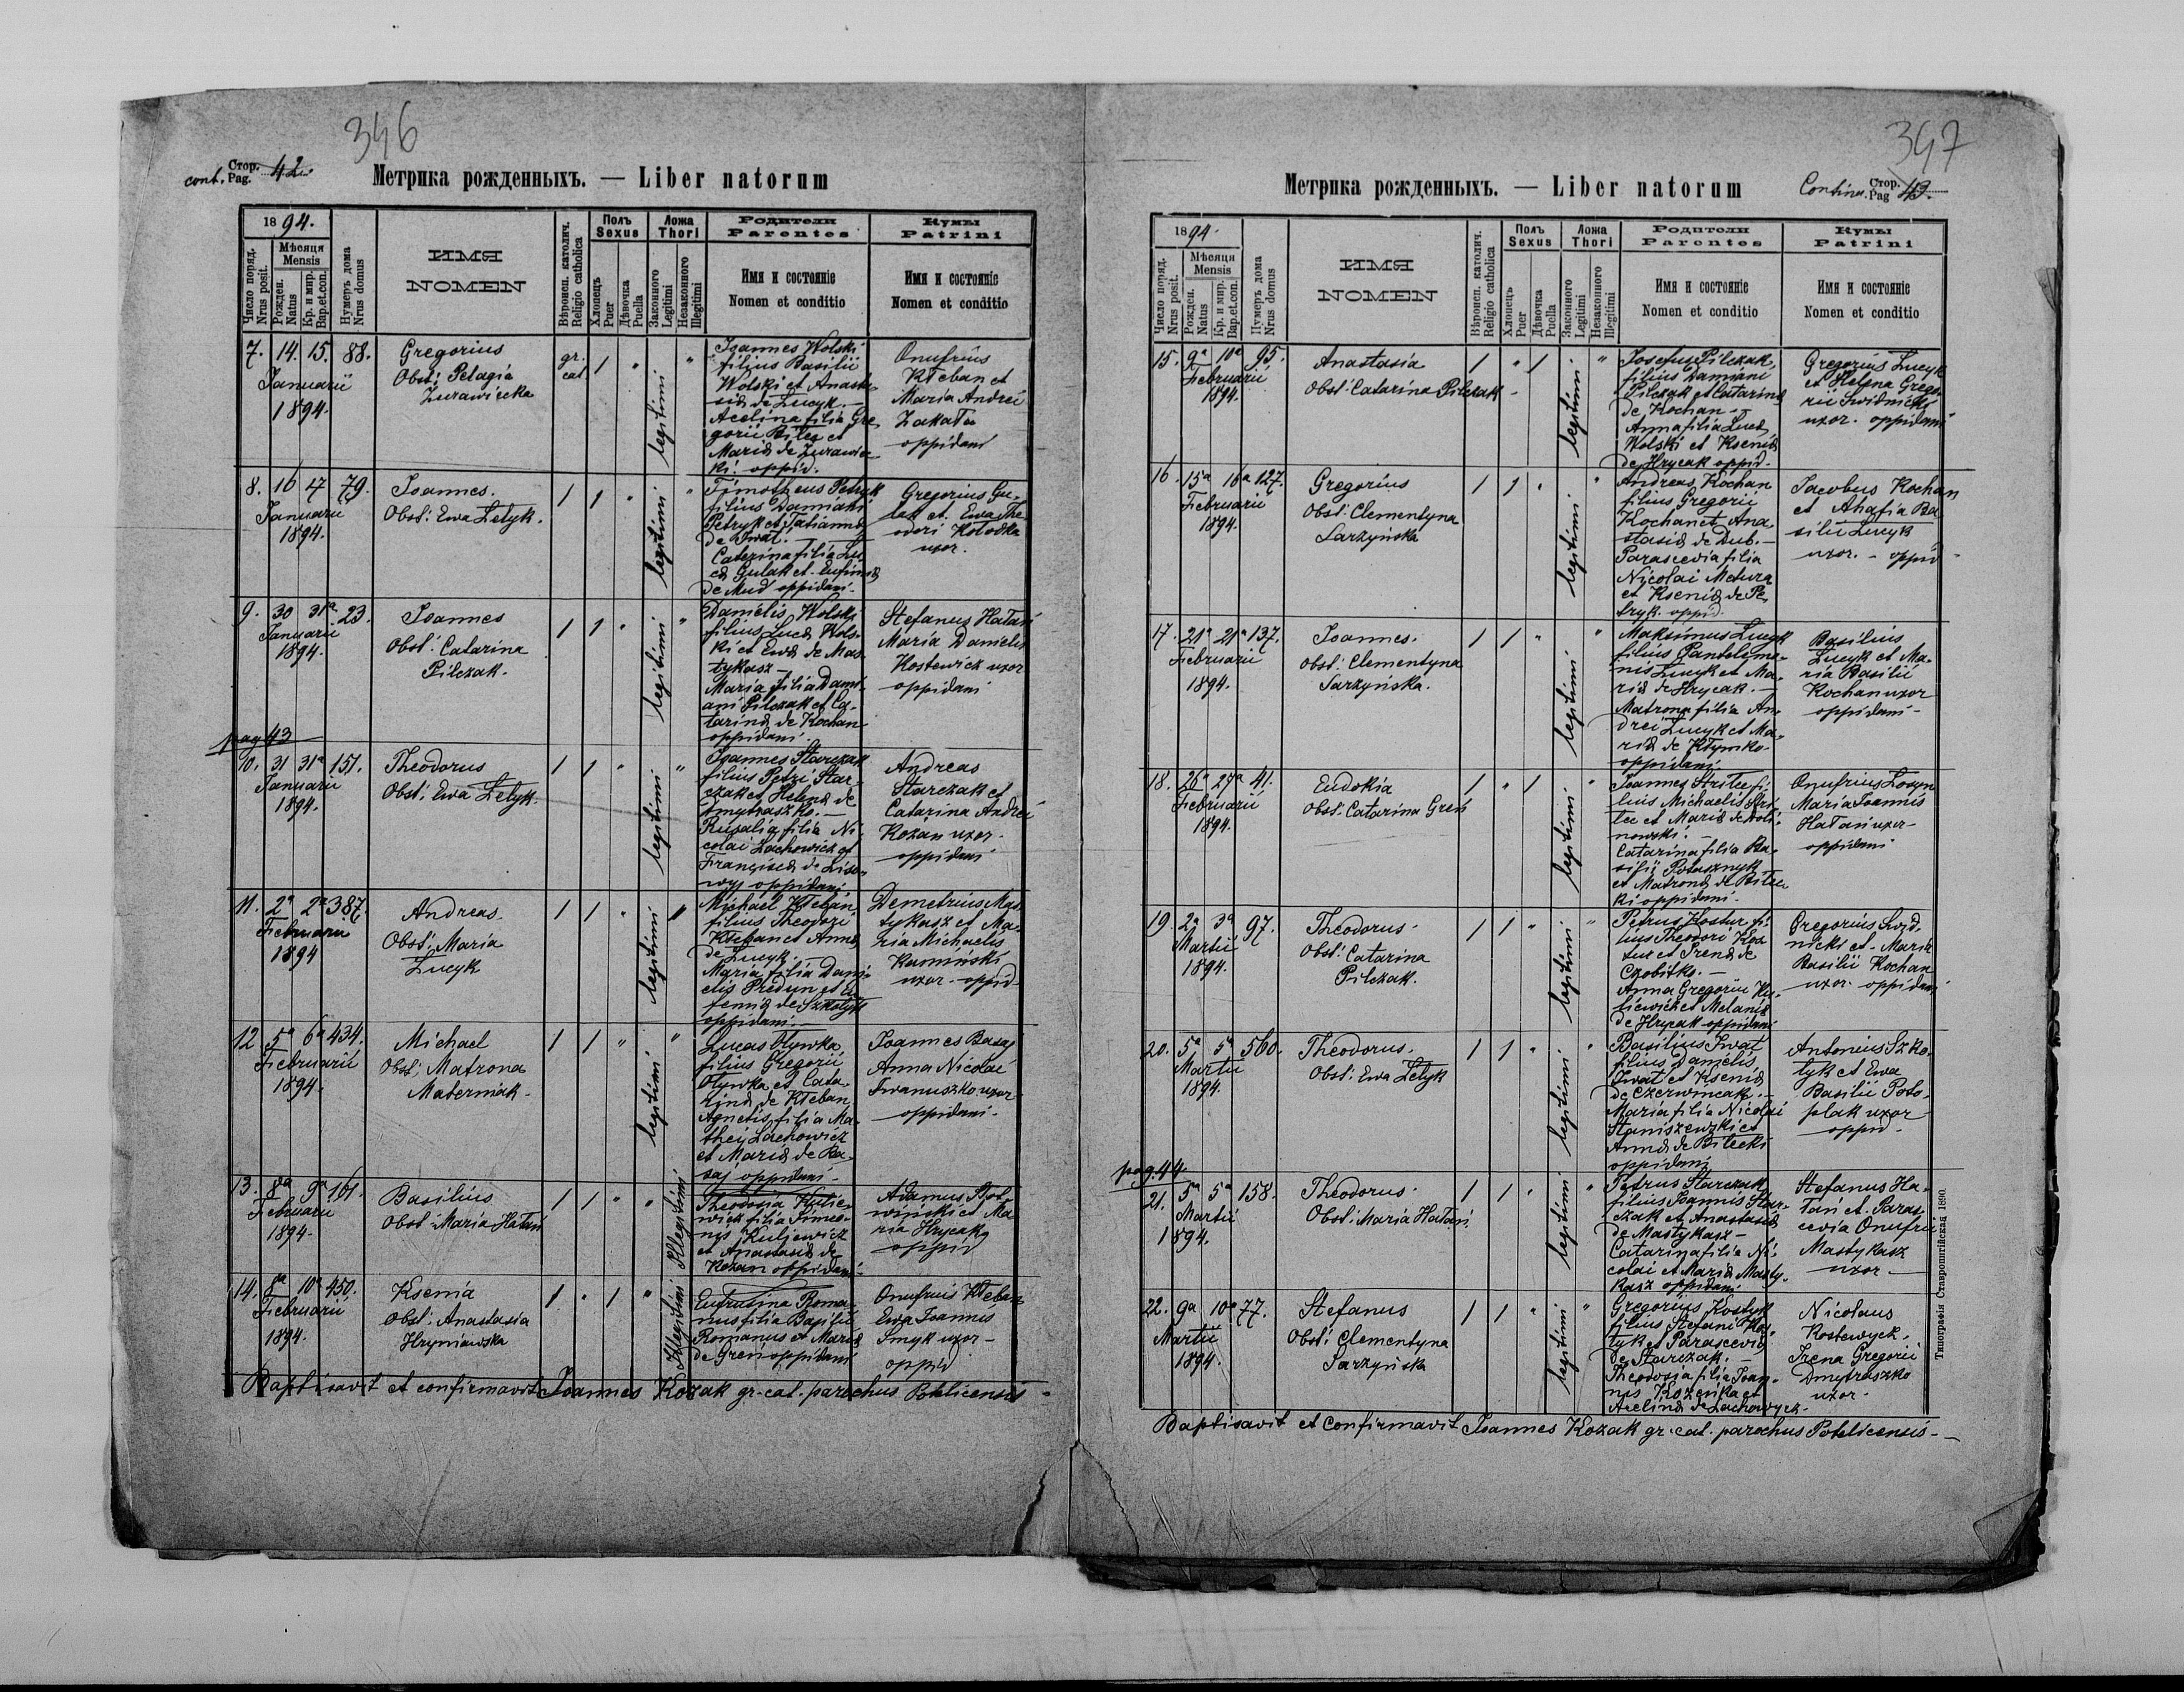 346
cont. Стор. Pag. 42.
Метрика рожденныхъ. — Liber natorum
1894.
Число поряд. Nrus posit.
Мѣсяця Mensis
Рожден. Natus
Кр. и мир. Bap.et.con.
Нумеръ дома Nrus domus
ИМЯ
NOMEN
Вѣроисп. католич. Religio catholica
Полъ Sexus
Хлопецъ Puer
Дѣвочка Puella
Ложа Thori
Законного Legitimi
Незаконного Illegitimi
Родители
Parentes
Имя и состояніе
Nomen et conditio
Кумы
Patrini
Имя и состояніе
Nomen et conditio
7. 14. 15. 88.
Januarii
1894.
Gregorius
Obst: Pelagia
Żurawiecka
gr. cat. 1 "
legitimi "
Joannes Wolski
filius Basilii
Wolski et Anasta-
siæ de Łucyk. —
Acelina filia Gre
gorii Bilec et
Mariæ de Żurawic-
ki. oppid.
Onufrius
Kłeban et
Maria Andrei
Zakała
oppidani
8. 16 17 79.
Januarii
1894.
Joannes.
Obst: Ewa Letyk.
1 1 "
legitimi "
Timotheus Petryk
filius Damiani
Petryk et Tatiannæ
de Iwat. —
Catarina filia Lu-
cæ Gulak et Eufimiæ
de Mud oppidani.
Gregorius Gu-
lak et Ewa The-
odori Kołodka
uxor.
9. 30 31ª 23.
Januarii
1894.
Joannes
Obst: Catarina
Pilczak.
1 1 "
legitimi "
Daniélis Wolski
filius Lucæ Wols-
ki et Ewæ de Mas-
tykasz —
Maria filia Dami-
ani Pilczak et Ca-
tarinæ de Kochan
oppidani.
Stefanus Hatasi
Maria Danielis
Kostewicz uxor
oppidani
pag 43
10. 31 31ª 151.
Januarii
1894.
Theodorus
Obst: Ewa Letyk.
1 1 "
legitimi "
Joannes Starczak
filius Petri Star-
czak et Helenæ de
Dmytraszko. —
Rozalia filia Ni-
colai Lachowicz et
Franciscæ de Liso-
wyj oppidani
Andreas
Starczak et
Catarina Andrei
Kozan uxor.
oppidani
11. 2ª 2ª 387.
Februarii
1894
Andreas.
Obst: Maria
Łucyk
1 1 "
legitimi "
Michael Kłeban
filius Theodori
Kłeban et Annæ
de Łucyk. —
Maria filia Dani-
elis Predyn et Eu-
femiæ de Szkołyk
oppidani. —
Demetrius Mas-
tykasz et Ma-
ria Michaelis
Kamiński
uxor - oppid-
12 5ª 6ª 434.
Februarii
1894.
Michael
Obst: Matrona
Materniak.
1 1 "
legitimi "
Lucas Hywka
filius Gregorii
Hywka et Cata-
rinæ de Kłeban
Agnetis filia Ma-
thei Lachowicz
et Mariæ de Ba-
saj oppidani.
Joannes Basaj
Anna Nicolai
Iwanuszko uxor
oppidani.
13. 8ª 9ª 161.
Februarii
1894.
Basilius
Obst: Maria Hatasi
1 1 " "
Illegitimi
Theodosia Kulie-
wicz filia Simeo-
nis Kuljewicz
et Anastasiæ de
Kozan oppidani.
Adamus
et Ma
ria Hrycak
oppid
14. 8ª 10ª 450.
Februarii
1894.
Ksenia
Obst: Anastasia
Hryniawska
1 " 1 "
Illegitimi
Eufrusina Roma-
nus filia Basilii
Romanus et Mariæ
de Greń oppidani
Onufrius Kłeban
Ewa Joannis
Smyk uxor —
oppid
Baptisavit et confirmavit Joannes Kozak gr-cat. parochus Potelicensis.
347
Continu. Стор. Pag 43.
Метрика рожденныхъ. — Liber natorum
1894.
Число поряд. Nrus posit.
Мѣсяця Mensis
Рожден. Natus
Кр. и мир. Bap.et.con.
Нумеръ дома Nrus domus
ИМЯ
NOMEN
Вѣроисп. католич. Religio catholica
Полъ Sexus
Хлопецъ Puer
Дѣвочка Puella
Ложа Thori
Законного Legitimi
Незаконного Illegitimi
Родители
Parentes
Имя и состояніе
Nomen et conditio
Кумы
Patrini
Имя и состояніе
Nomen et conditio
15. 9ª 10ª 95.
Februarii
1894.
Anastasia
Obst: Catarina Pilczak
1 " 1
legitimi "
Josefus Pilczak,
filius Damiani
Pilczak et Catarinæ
de Kochan —
Anna filia Lucæ
Wolski et Kseniæ
de Hrycak oppid.
Gregorius Łucyk
et Helena Grego-
rii Swidnicki
uxor. oppidani
16. 15ª 16ª 127.
Februarii
1894.
Gregorius
Obst: Clementyna
Sarzyńska
1 1 "
legitimi "
Andreas Kochan
filius Gregorii
Kochan et Ana-
stasiæ de Dub. —
Parascevia filia
Nicolai Metura
et Kseniæ de Pe-
tryk. oppid.
Jacobus Kochan
et Ahafia Ba-
silii Łucyk
uxor. - oppid
17. 21ª 21ª 137.
Februarii
1894.
Joannes.
Obst: Clementyna
Sarzyńska.
1 1 "
legitimi "
Maksimus Łucyk
filius Pantelymo-
nis Łucyk et Ma-
riæ de Hrycak. —
Matrona filia An-
drei Łucyk et Ma-
riæ de Kłymko-
oppidani
Basilius
Łucyk et Ma-
ria Basilii
Kochan uxor
oppidani —
18. 26ª 27ª 41.
Februarii
1894.
Eudokia
Obst: Catarina Greń
1 " 1
legitimi "
Joannes Strilec fi-
lius Michaelis Stri-
lec et Mariæ de Woli-
nowski. —
Catarina filia Ba-
silii Potasznyk
et Matronæ de Bilec-
ki oppidani.
Onufrius Łosyn
Maria Joannis
Hatasi uxor —
oppidani
19. 2ª 3ª 97.
Martii
1894.
Theodorus.
Obst: Catarina
Pilczak.
1 1 "
legitimi "
Petrus Kostur fi-
lius Theodori Kos
tur et Irenæ de
Czobitko. —
Anna Gregorii Ku-
liewicz et Melaniæ
de Hrycak oppidani
Gregorius Swyd-
nicki et Maria
Basilii Kochan
uxor. oppidani
20. 5ª 5ª 560.
Martii
1894.
Theodorus.
Obst: Ewa Letyk
1 1 "
legitimi "
Basilius Iwat
filius Daniélis
Iwat et Kseniæ
de Czerwincak. —
Maria filia Nicolai
Staniszewski et
Annæ de Bilecki
oppidani
Antonius Szko-
łyk et Ewa
Basilii Poto-
plak uxor
oppid.
pag. 44
21. 5ª 5ª 158.
Martii
1894.
Theodorus.
Obst: Maria Hatasi
1 1 "
legitimi "
Petrus Starczak
filius Joannis Star-
czak et Anastasiæ
de Mastykasz —
Catarina filia Ni-
colai et Mariæ Masty-
kasz oppidani
Stefanus Ha-
tasi et Paras-
cevia Onufrii
Mastykasz
uxor —
22. 9ª 10ª 77.
Martii
1894.
Stefanus
Obst: Clementyna
Sarzyńska
1 1 "
legitimi "
Gregorius Kostyk
filius Stefani Kos-
tyk et Parasceviæ
de Starczak. —
Theodosia filia Joan-
nis Kozenka et
Acelinæ de Lachowycz.
Nicolaus
Kostewycz.
Irena Gregorii
Dmytraszko
uxor.
Baptisavit et confirmavit Joannes Kozak gr.cat. parochus Potelicensis —
Типографія Ставропигійская 1890.